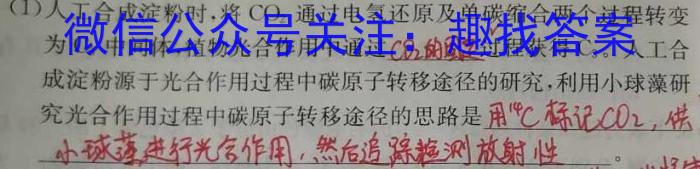 (1)人工合成淀粉时,将CO₂通过电氢还原及单碳缩合两个过程转变
微信公众号关注：趣找答案
为 中间体 植物光合作用中通过CO₂的固定过程获得C₃。人工合
成淀粉源于光合作用过程中碳原子转移途径的研究,利用小球藻研
究光合作用过程中碳原子转移途径的思路是 用¹⁴C标记CO₂,供
小球藻进行光合作用,然后追踪检测放射性 。